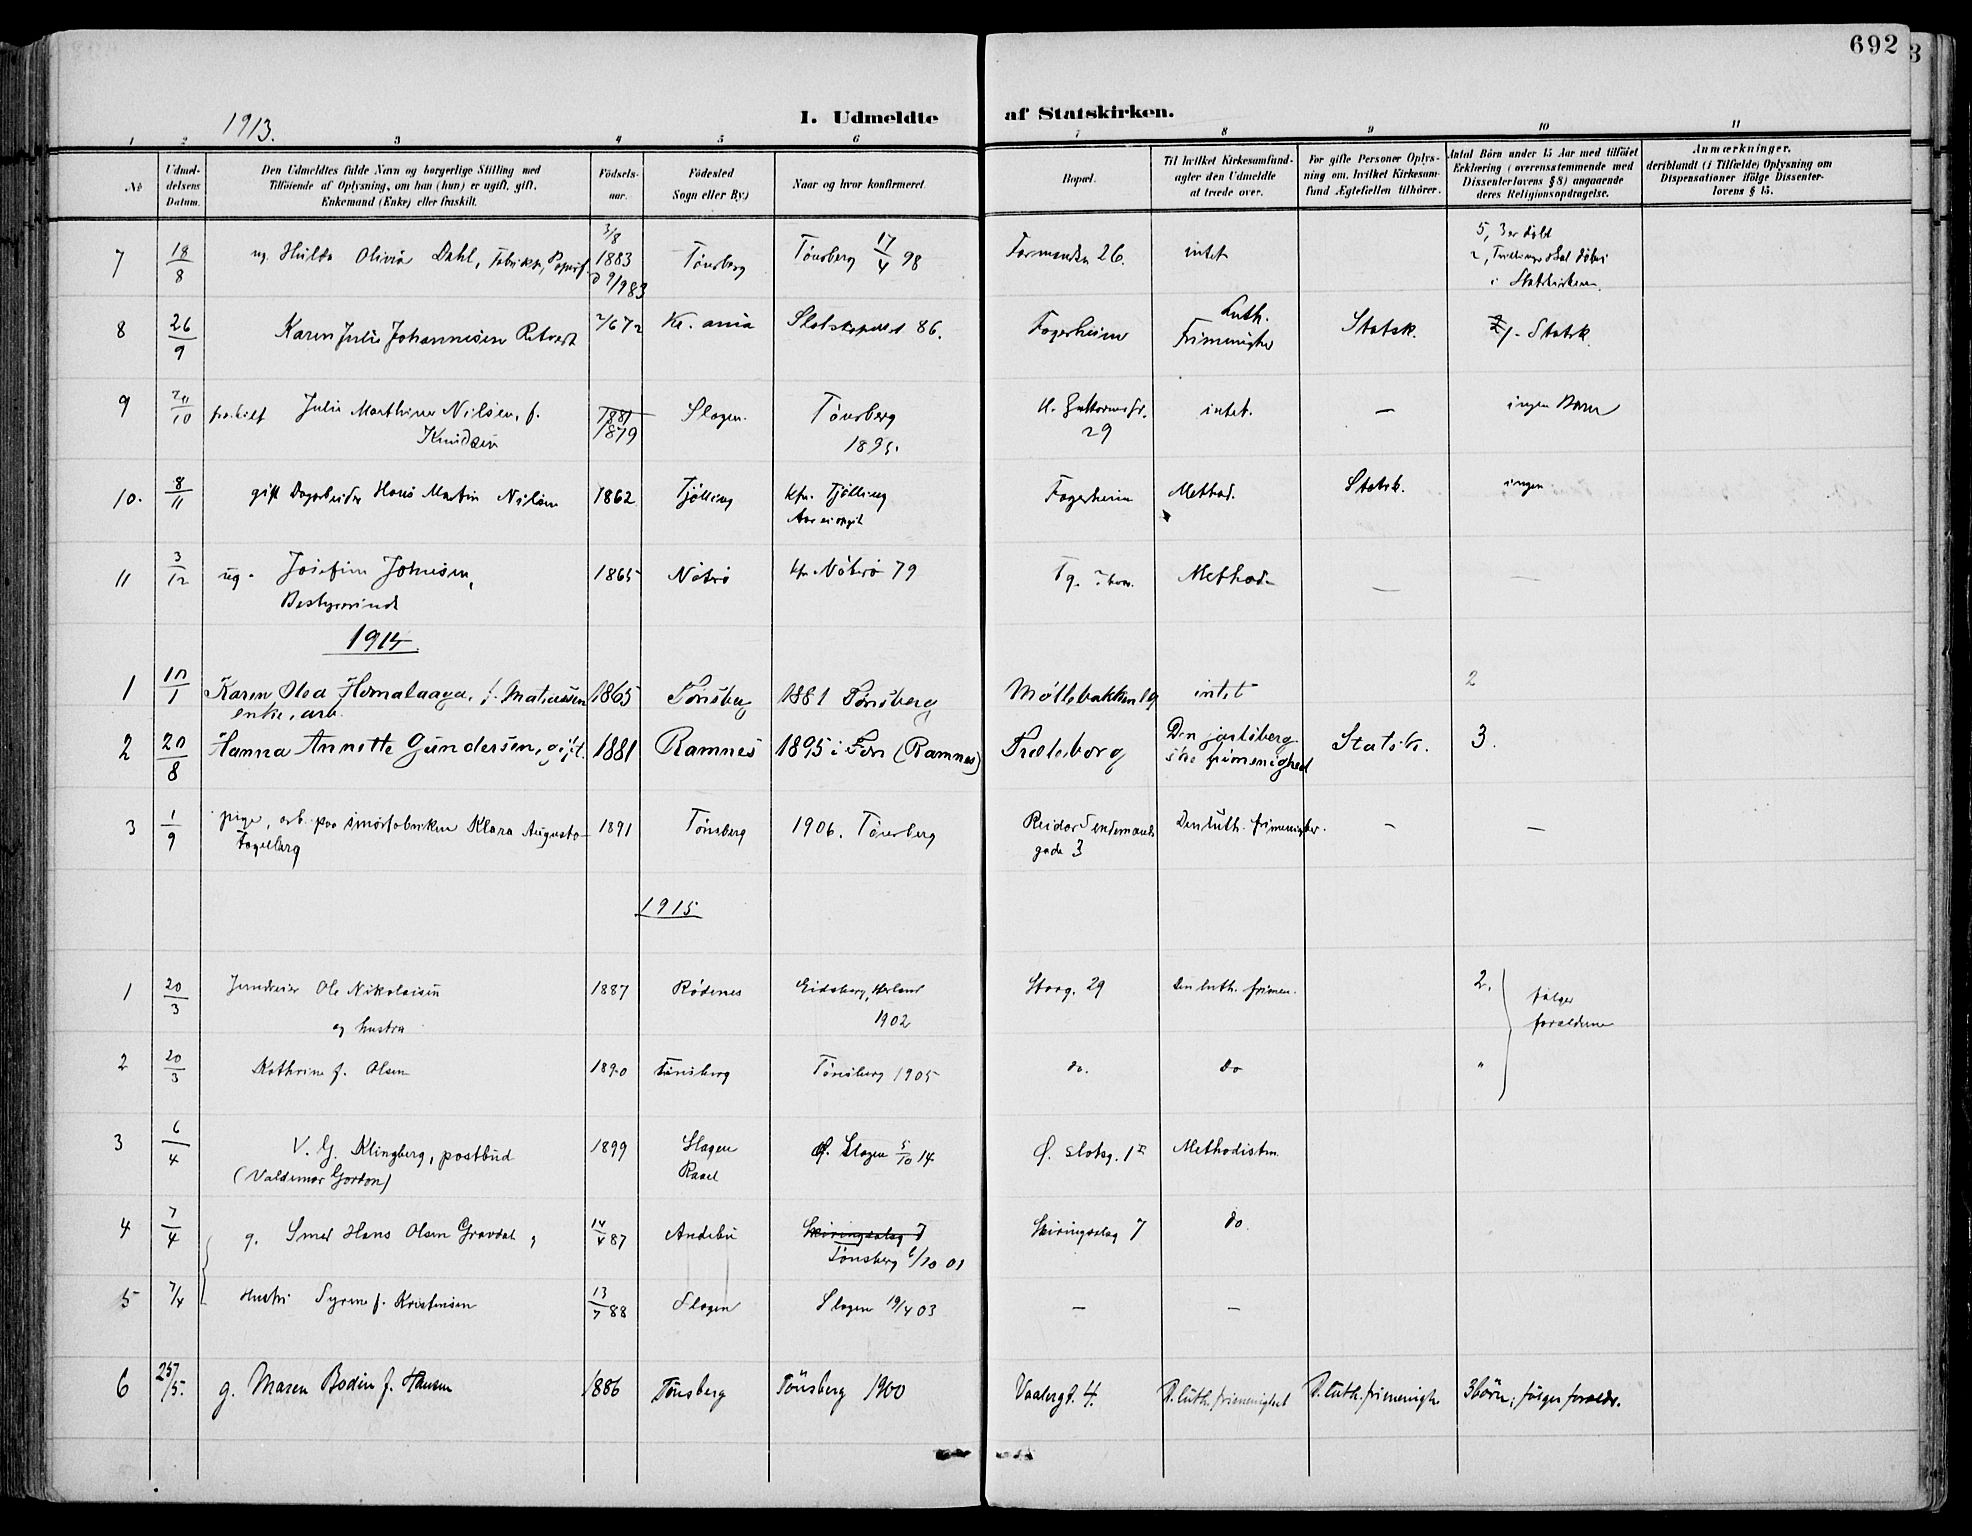 692
3
1913.
I. Udmeldte af Statskirken.
1 2 3 4 5 6 7 8 9 10 11
No
Udmel-
delsens
Datum.
Den Udmeldtes fulde Navn og borgerlige Stilling med
Tilføiende af Oplysning, om han (hun) er ugift, gift,
Enkemand (Enke) eller fraskilt.
Fødsels-
aar.
Fødested
Sogn eller By.)
Naar og hvor konfirmeret.
Bopæl.
Til hvilket Kirkesamfund
agter den Udmeldte
at træde over.
For gifte Personer Oplys-
ning om, hvilket Kirkesam-
fund Ægtefællen tilhører.
Antal Børn under 15 Aar med tilføiet
Erklæring (overensstemmende med
Dissenterlovens § 8) angaaende
deres Religionsopdragelse.
Anmærkninger,
deriblandt (i Tilfælde) Oplysning om
Dispensationer ifølge Dissenter-
lovens § 15.
7 18/8 ug. Hulda Olivia Dahl, 3/8 1883 Tönsberg Tönsberg 17/4 98 26. intet 5, 3 er døbt
i Statskirken
8 26/9 Karen Julie Johannesen 2/6 72 Kr. ania 86. Fagerheim Luth.
Frimenighed Statsk. 1 - Statsk.
9 20/10 fraskilt Julie Marthine Nilsen, f.
Knudsen 1881
1879 Slagen. Tönsberg
1895. 29 intet. — ingen Børn
10. 8/11 gift Dagarbeider Hans Martin Nilsen 1862 Tjölling kfr. Tjölling
Aar ei opgit Fagerheim Method. Statsk. ingen
11 3/12 ug. Josefine Johnsen,
Bestyrerinde 1865 Nöterö kfr. Nöterö 79 Method. — —
1914
1 10/1 Karen Olea f. Matiassen
enke, arb. 1865 Tønsberg 1881 Tønsberg Møllebakken 19 intet 2
2 20/8 Hanna Annette Gundersen, gift. 1881 Ramnes 1895 i Fon (Ramnes) Træleborg Den jarlsberg-
ske frimenighed Statsk. 3.
3 1/9 pige, arb. paa smørfabriken Klara Augusta
Fagelberg 1891 Tönsberg 1906. Tönsberg Reidar Sendemands
gade 3 Den luth. frimenighed. — —
1915
1 20/3 Ole Nikolaisen
og hustru 1887 Rödenes Eidsberg, Herland
1902 Storg. 29 Den luth. frimen. 2. følger
forældrene
2 20/3 Kathrine f. Olsen 1890 Tönsberg Tönsberg 1905 do. do "
3 6/4 V. G. Klingberg, postbud
(Valdemar Gordon) 1899 Slagen
Ravel Slagen 5/10 14 Ø. Slotsg. Methodisten
4 7/4 g. Smed Hans Olsen Gravdal, 14/4 87 Andebu Skiringssalsg 7
Tönsberg 6/10 01 Skiringssalsg 7 do.
5 7/4 Hustru Syrene f. Kristensen 13/7 88 Slagen Slagen 19/4 03 — —
6 25/5. g. Maren Bodin f. Hansen 1886 Tönsberg Tönsberg 1900 Vaalergt. 4. D. luth. frimenighet D. luth. frimenigh. 3 börn; følger foreldr.